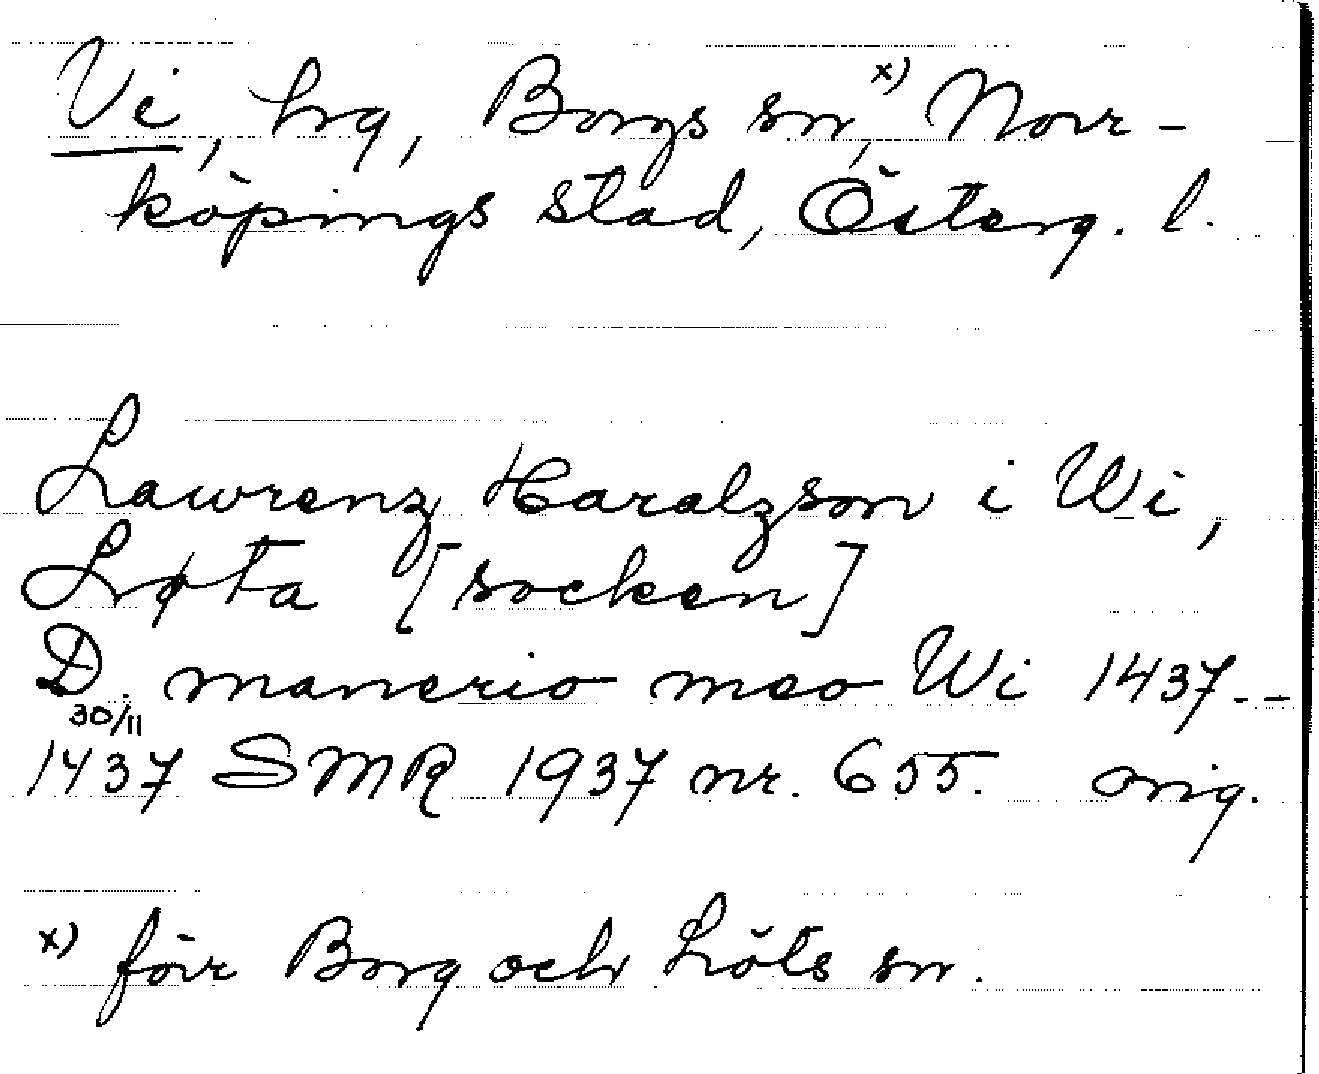 Vi, hg, Borgs sn,x) Norr-
köpings stad, Österg. l.
Lawrenz Haralzson i Wi,
Løta [socken]
D. manerio meo Wi 1437--
30/11
1437 SMR 1937 nr. 655. orig.
x) förr Borg och Löts sn.